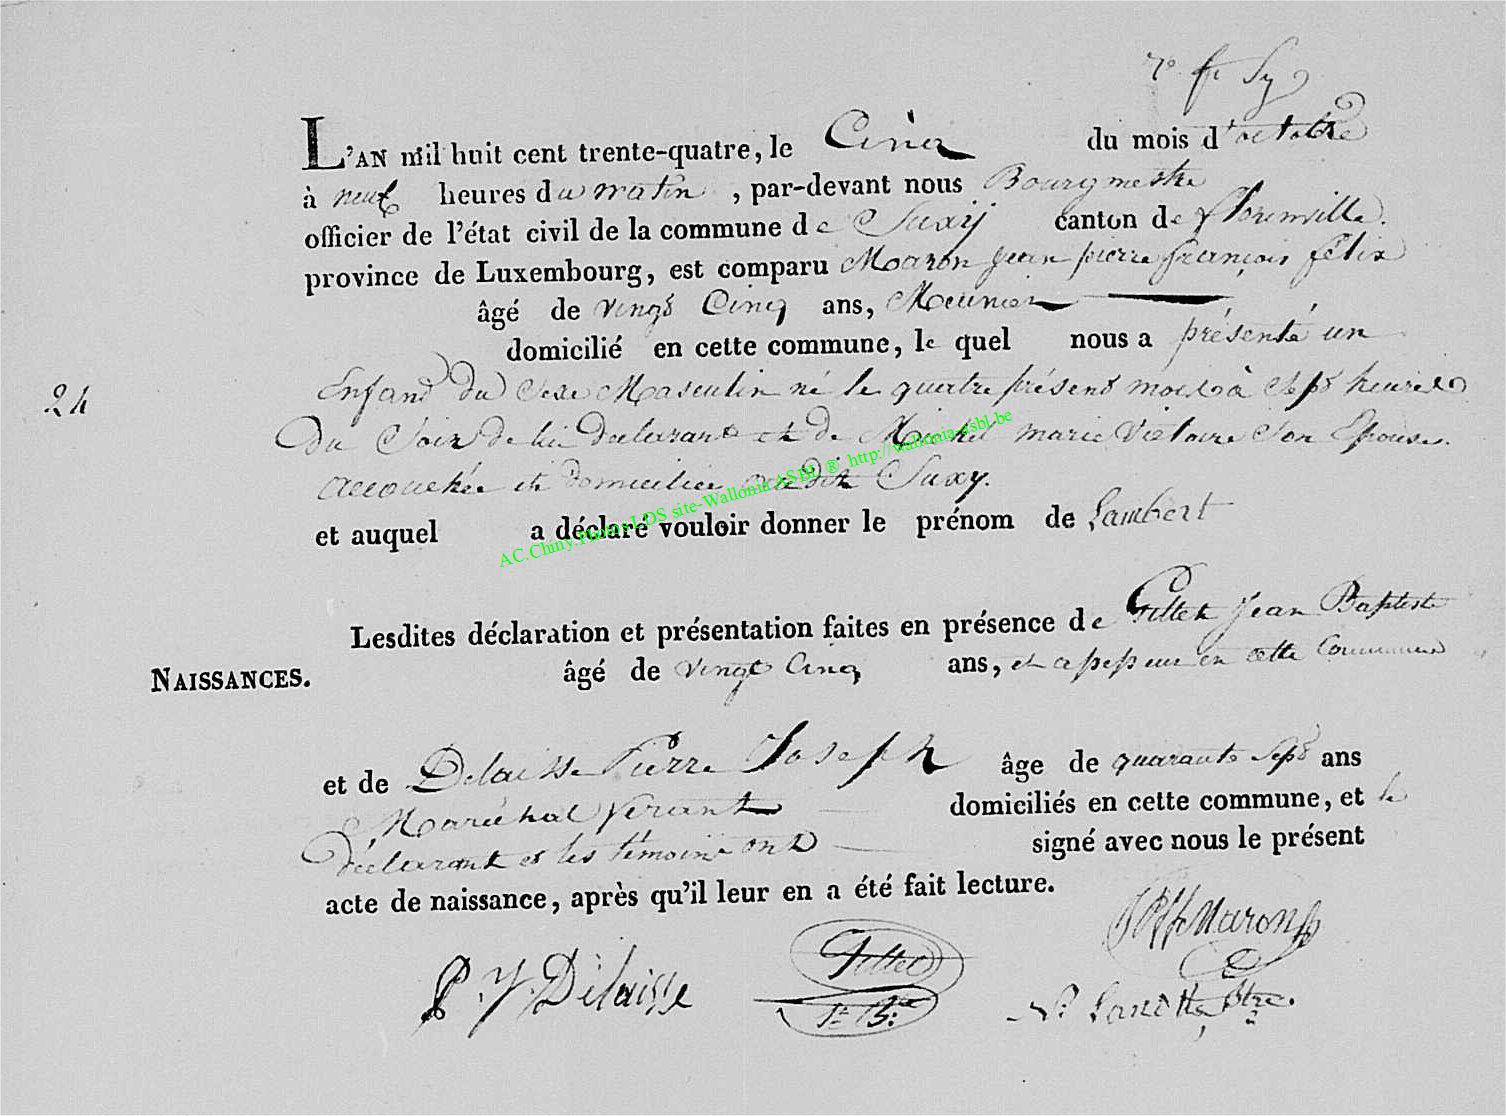 L'AN mil huit cent trente-quatre, le Cinq du mois d'octobre
à neuf heures du matin, par-devant nous Bourgmestre
officier de l'état civil de la commune de Suxÿ canton de florenville.
province de Luxembourg, est comparu Maron jean pierre françois félix
âgé de vingt Cinq ans, Meunier
domicilié en cette commune, le quel nous a présenté un
24
Enfand Du Sexe Masculin né le quatre présent mois à Sept heures
Du Soir de lui declarant et de Michel marie Victoire Son Epouse.
accouchée et domiciliée audit Suxy.
et auquel a déclaré vouloir donner le prénom de Lambert
AC.Chiny.Photos LDS site-Wallonia ASBL ® http://wallonia-asbl.be
Lesdites déclaration et présentation faites en présence de Gillet Jean Baptiste
NAISSANCES.
âgé de vingt Cinq ans, et assesseur en cette Commune
et de Delaisse Pierre Joseph âge de quarante Sept ans
Maréchal ferrant domiciliés en cette commune, et le
déclarant et les témoins ont signé avec nous le présent
acte de naissance, après qu'il leur en a été fait lecture.
Maron
P. J. Delaisse Gillet
Jn Bte